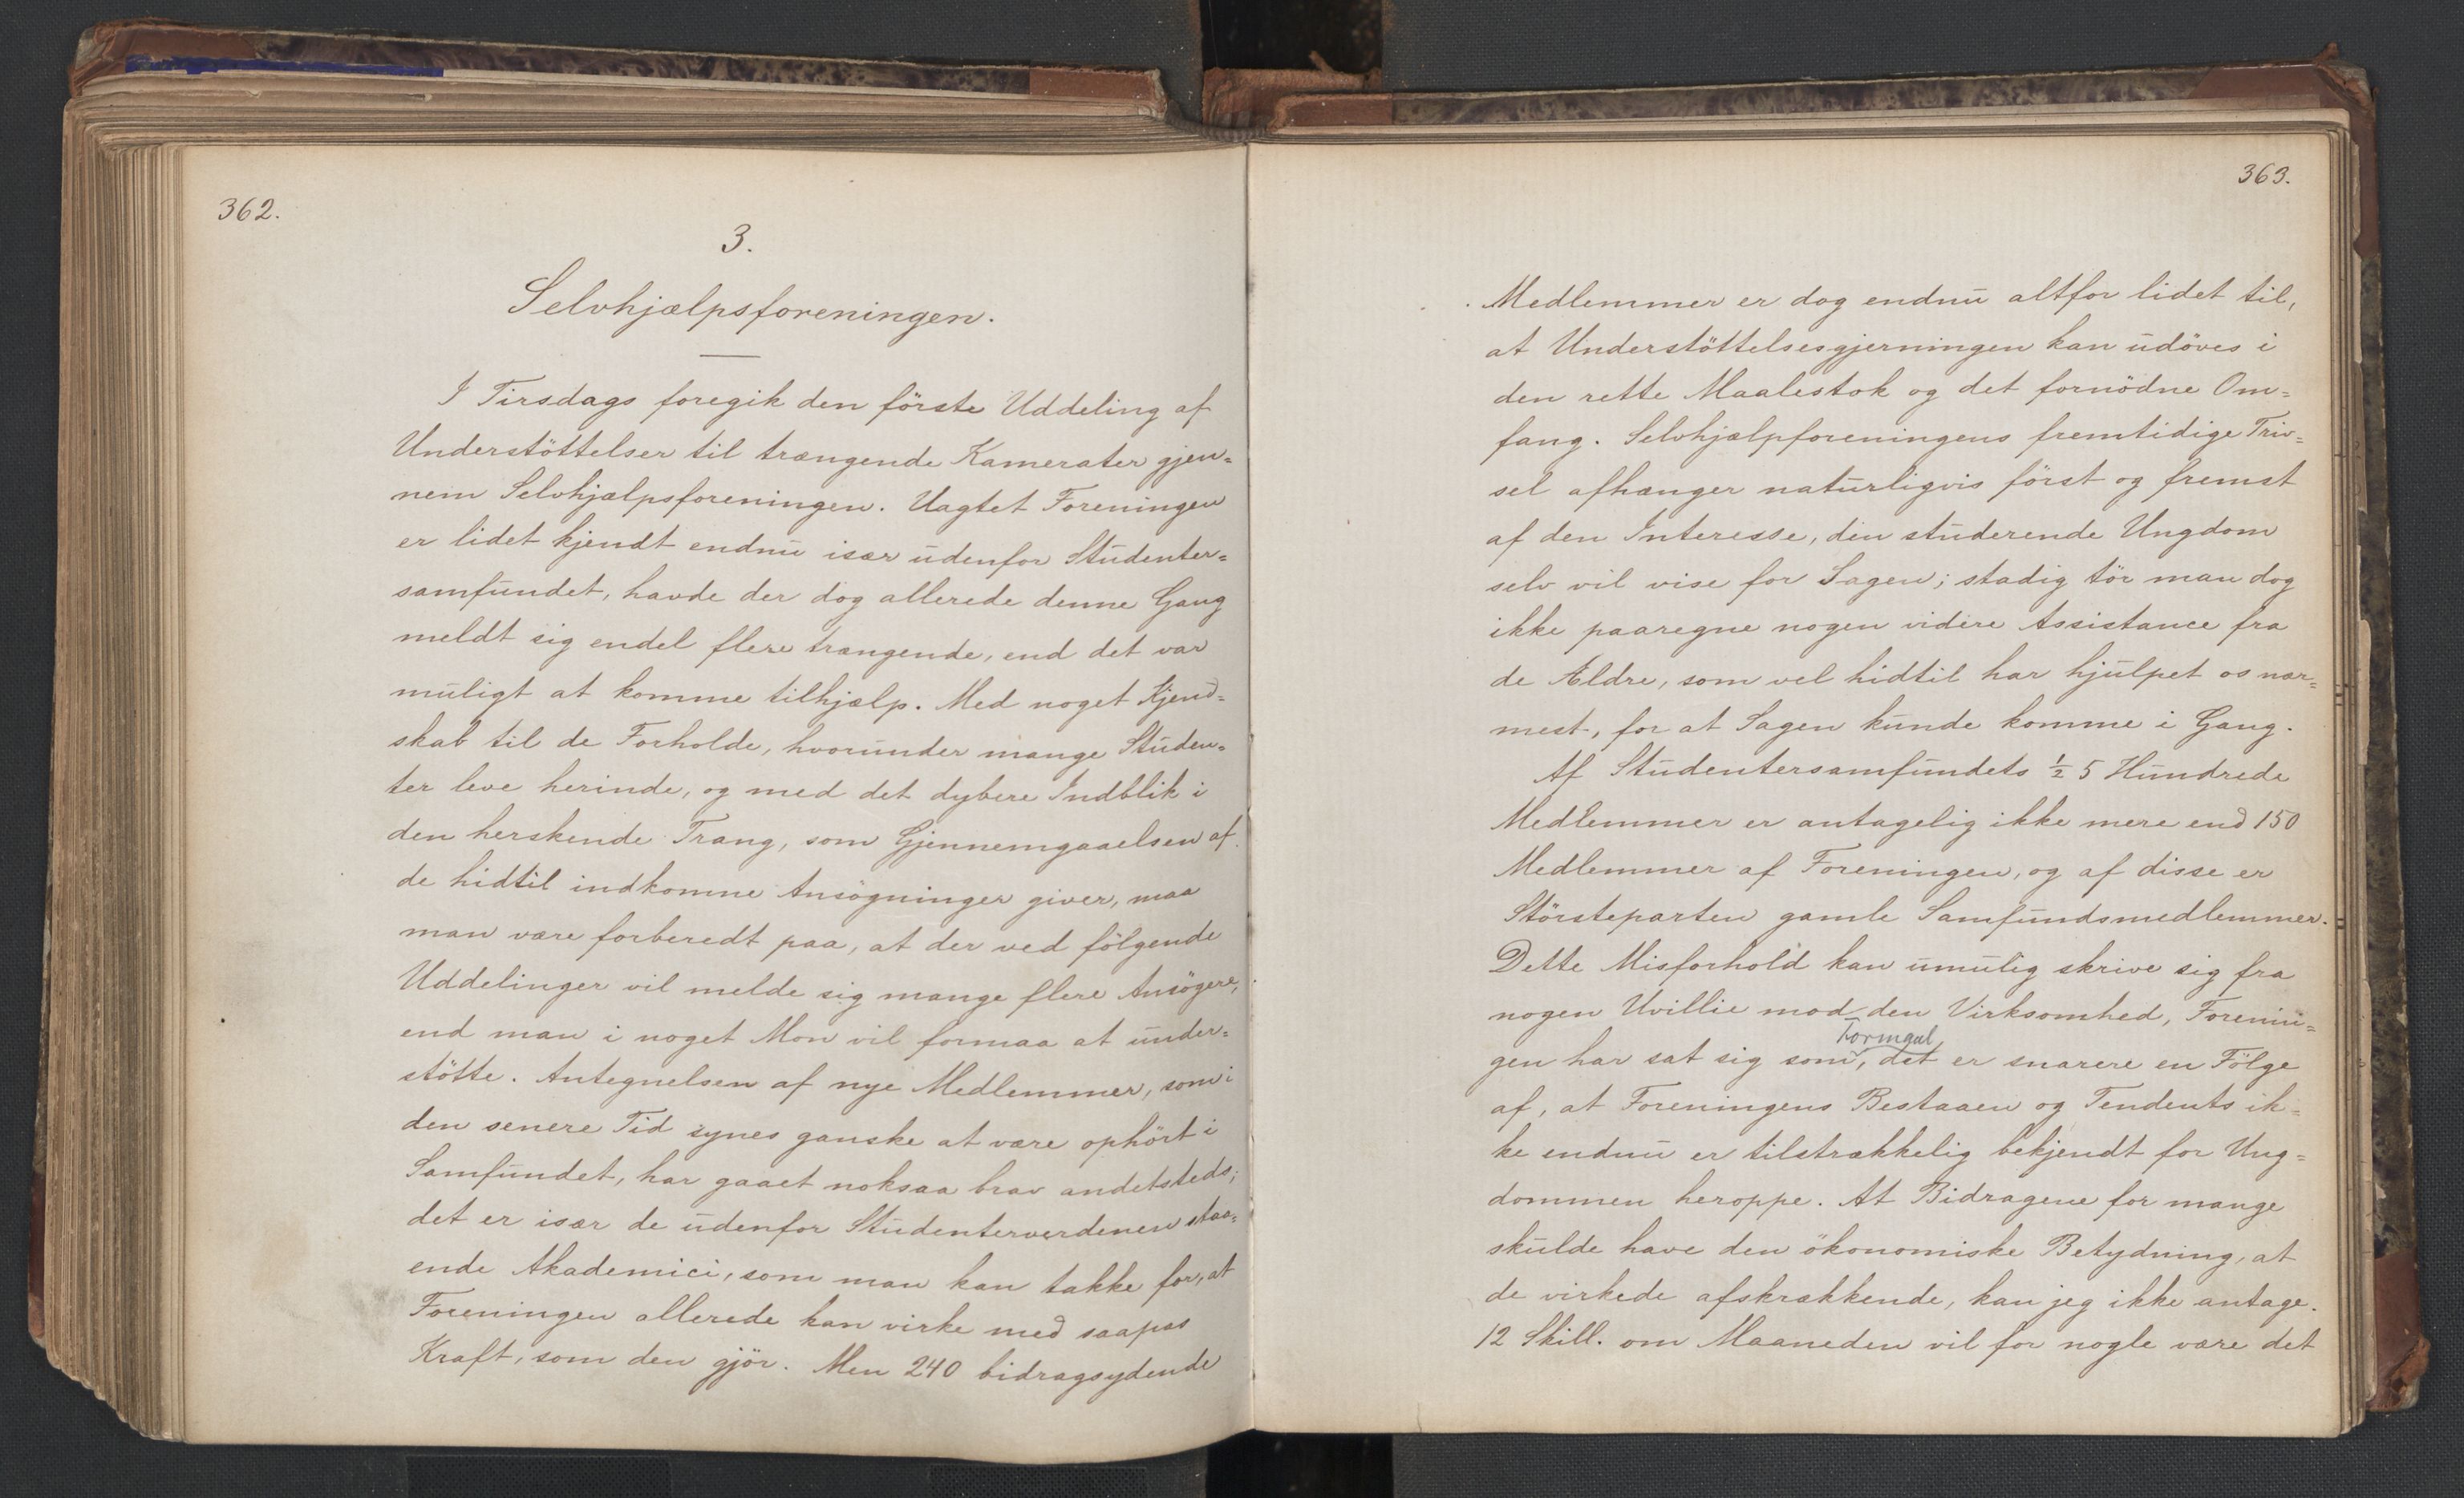 362.
3.
Selvhjælpsforeningen.
I Tirsdags foregik den förste Uddeling af
Understöttelser til trængende Kamerater gjen=
nem Selvhjælpsforeningen. Uagtet Foreningen
er lidet kjendt endnu især udenfor Studenter=
samfundet, havde der dog allerede denne Gang
meldt sig endel flere trængende, end det var
muligt at komme tilhjælp. Med noget Kjend=
skab til de Forholde, hvorunder mange Studen=
ter leve herinde, og med det dybere Indblik i
den herskende Trang, som Gjennemgaaelsen af
de hidtil indkomne Ansögninger giver, maa
man være forberedt paa, at der ved fölgende
Uddelinger vil melde sig mange flere Ansögere,
end man i noget Mon vil formaa at under=
stötte. Antegnelsen af nye Medlemmer, som i
den senere Tid synes ganske at være ophört i
Samfundet, har gaaet noksaa brav andetsteds;
det er især de udenfor Studenterverdenen staa=
ende Akademici, som man kan takke for, at
Foreningen allerede kan virke med saapas
Kraft, som den gjör. Men 240 bidragsydende
363.
Medlemmer er dog endnu altfor lidet til,
at Understöttelsesgjerningen kan udöves i
den rette Maalestok og det fornödne Om=
fang. Selvhjælpforeningens fremtidige Triv=
sel afhænger naturligvis först og fremst
af den Interesse, den studerende Ungdom
selv vil vise for Sagen; stadig tör man dog
ikke paaregne nogen videre Assistance fra
de Ældre, som vel hidtil har hjulpet os nær=
mest, for at Sagen kunde komme i Gang.
Af Studentersamfundets ½ 5 Hundrede
Medlemmer er antagelig ikke mere end 150
Medlemmer af Foreningen, og af disse er
Störsteparten gamle Samfundsmedlemmer.
Dette Misforhold kan umulig skrive sig fra
nogen Uvillie mod den Virksomhed, Forenin=
Formaal
gen har sat sig som, det er snarere en Fölge
af, at Foreningens Bestaaen og Tendents ik=
ke endnu er tilstrækkelig bekjendt for Ung=
dommen heroppe. At Bidragene for mange
skulde have den ökonomiske Betydning, at
de virkede afskrækkende, kan jeg ikke antage.
12 Skill. om Maaneden vil for nogle være det